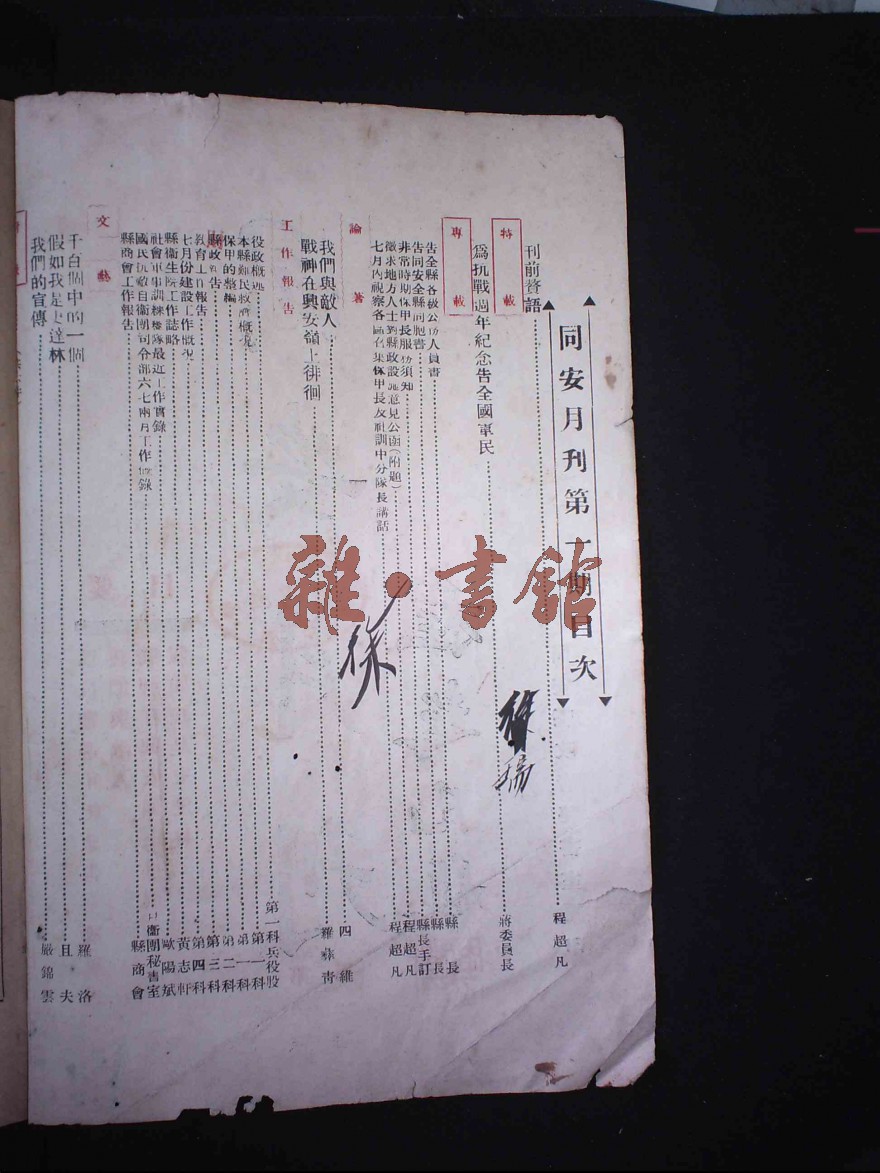 同安月刊第一期目次
刊前贅語 程超凡
特載
為抗戰週年紀念告全國軍民 蔣委員長
專載
告全縣各級公務人員書 縣長
告同安全縣同胞書 縣長
非常時期保甲長服務須知 縣長手訂
徵求地方人士對縣政設施意見公函(附題) 程超凡
七月內視察各區召集保甲長及社訓中分隊長講話 程超凡
論著
我們與敵人 四維
戰神在興安嶺上徘徊 羅蓀青
工作報告
役政概述 第一科兵役股
本縣難民救濟概況 第一科
保甲的整編 第一科
縣政報告 第二科
教育工作報告 第三科
七月份建設工作概況 第四科
縣衛生院工作誌略 黃志軒
社會軍事訓練總隊最近工作實錄 歐陽斌
國民抗敵自衛團司令部六七兩月工作 錄 自衛團秘書室
縣商會工作報告 縣商會
文藝
千百個中的一個 羅洛
假如我是史達林 且夫
我們的宣傳 嚴錦雲
雜·書館